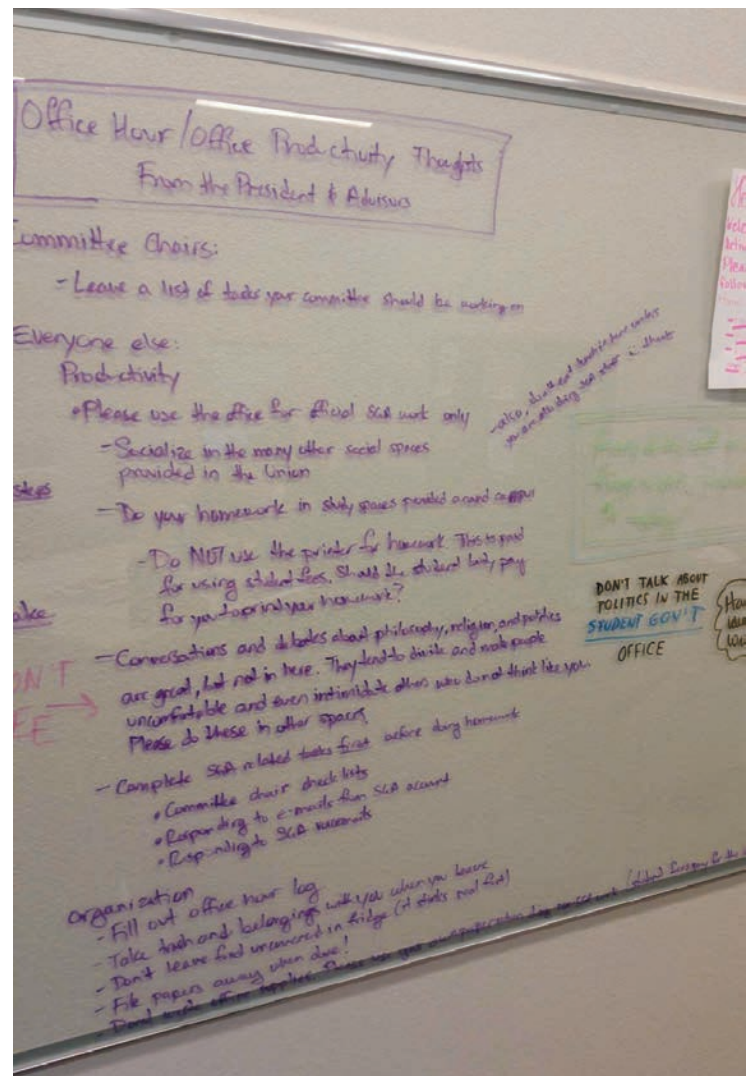 Office Hour / Office Productivity Thoughts
From the President & Advisors
Committee Chairs:
- Leave a list of tasks your committee should be working on
Everyone else:
Productivity
• Please use the office for official SGA work only
- Socialize in the many other social spaces
provided in the Union
- Do your homework in study spaces provided around campus
- Do NOT use the printer for homework. This is paid
for using student fees. Should the student body pay
for you to print your homework?
- Conversations and debates about philosophy, religion, and politics
are great, but not in here. They tend to divide and make people
uncomfortable and even intimidate others who do not think like you.
Please do these in other spaces.
- Complete SGA related tasks first before doing homework
• Committee chair check lists
• Responding to e-mails from SGA account
• Responding to SGA
Organization
- Fill out office hour log
- Take trash and belongings with you when you leave
- Don't leave food uncovered in fridge (it stinks real fast)
- File papers away when due!
- office supplies. Please use your own paper
- also,
you are attending SGA
steps
DON'T TALK ABOUT
POLITICS IN THE
STUDENT GOV'T
OFFICE